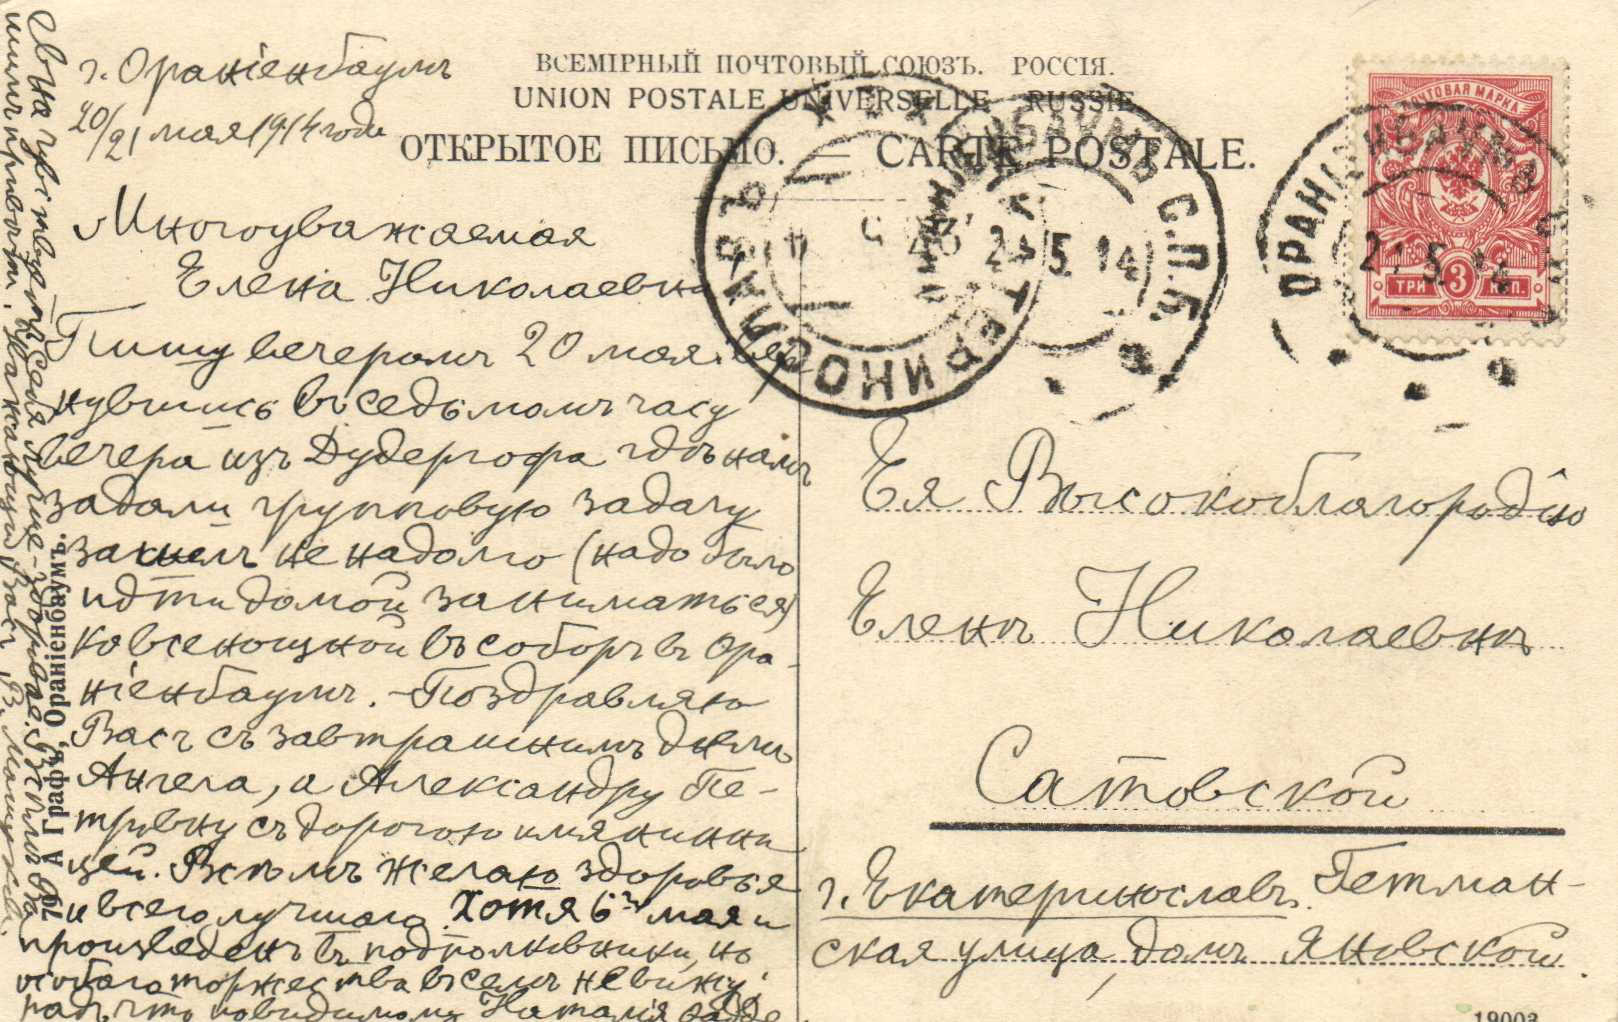 ВСЕМІРНЫЙ ПОЧТОВЫЙ СОЮЗЪ. РОССІЯ.
UNION POSTALE UNIVERSELLE RUSSIE
ОТКРЫТОЕ ПИСЬМО. — CARTE POSTALE.
г. Ораніенбаумъ
20/21 мая 1914 года
Многоуважаемая
Елена Николаевна
Пишу вечеромъ 20 мая. Вер
нувшись въ седьмомъ часу
вечера изъ Дудергофа гдѣ намъ
задали групповую задачу
не надолго (надо было
идти домой заниматься)
ко всенощной въ соборъ въ Ора-
ніенбаумъ. - Поздравляю
Васъ съ завтрашнимъ днемъ
Ангела, а Александру Пе-
тровну съ дорогою имянинни
цей. Всѣмъ желаю здоровья
и всего лучшаго. Хотя 6го мая и
произведенъ въ подполковники, но
особаго торжества въ семъ не вижу.
радъ, что повидимому Наталія
чувствуетъ себя лучше - здоровѣе. Всѣмъ Ва
шимъ привѣтъ. Уважающій Васъ В.
76 А Графъ, Ораніенбаумъ.
ПОЧТОВАЯ МАРКА
ТРИ 3 КОП.
ОРАНІЕНБАУМЪ С.П.Б.
21 5 14
ОРАНІЕНБАУМЪ С.П.Б.
21 5 14
ЕКАТЕРИНОСЛАВЪ
Ея Высокоблагородію
Еленѣ Николаевнѣ
Сатовской
г. Екатеринославъ. Гетман-
ская улица, домъ Яновской.
19003